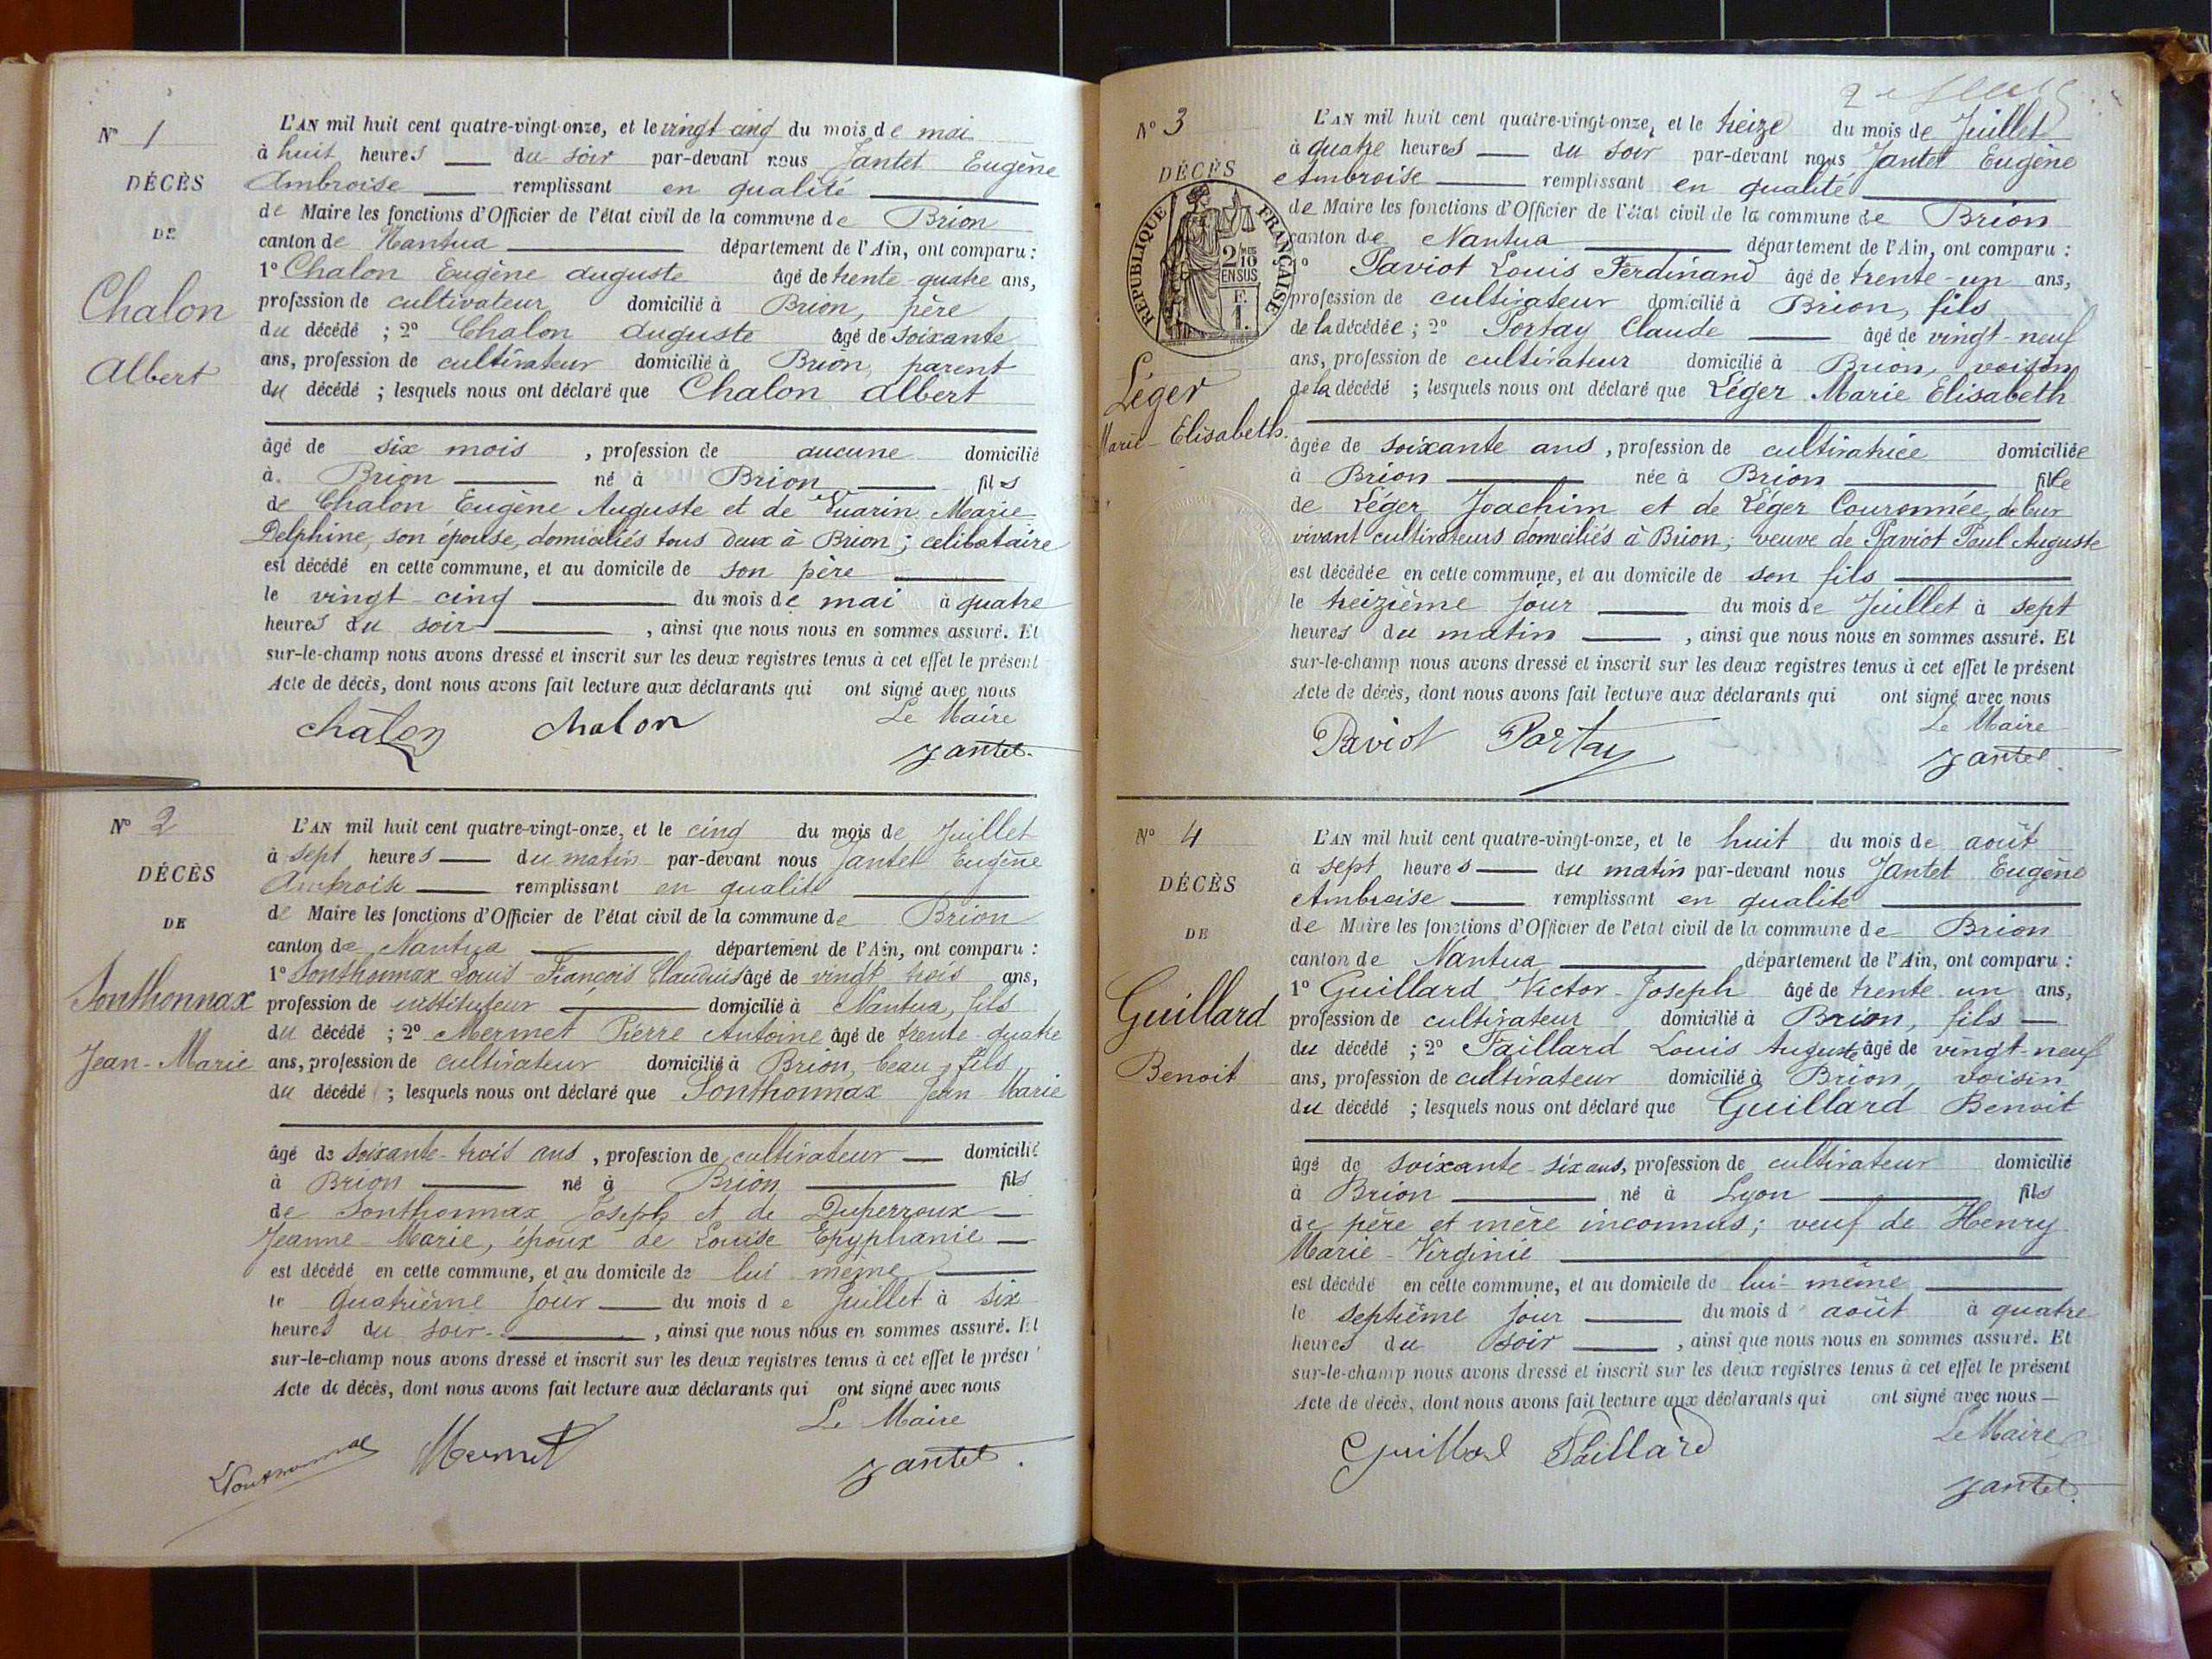 N° 1
DÉCÈS
DE
Chalon
Albert
L'AN mil huit cent quatre-vingt-onze, et le vingt cinq du mois de mai
à huit heures du soir par-devant nous Jantet Eugène
Ambroise remplissant en qualité
de Maire les fonctions d'Officier de l'état civil de la commune de Brion
canton de Nantua département de l'Ain, ont comparu :
1° Chalon Eugène Auguste âgé de trente quatre ans,
profession de cultivateur domicilié à Brion, père
du décédé ; 2° Chalon Auguste âgé de soixante
ans, profession de cultivateur domicilié à Brion, parent
du décédé ; lesquels nous ont déclaré que Chalon Albert
âgé de six mois , profession de aucune domicilié
à Brion né à Brion fils
de Chalon Eugène Auguste et de Guarin Marie
Delphine, son épouse, domiciliés tous deux à Brion ; celibataire
est décédé en cette commune, et au domicile de son père
le vingt-cinq du mois de mai à quatre
heures du soir , ainsi que nous nous en sommes assuré. Et
sur-le-champ nous avons dressé et inscrit sur les deux registres tenus à cet effet le présent
Acte de décès, dont nous avons fait lecture aux déclarants qui ont signé avec nous
Le Maire
Chalon Chalon Jantet
N° 2
DÉCÈS
DE
Sonthonnax
Jean-Marie
L'AN mil huit cent quatre-vingt-onze, et le cinq du mois de Juillet
à sept heures du matin par-devant nous Jantet Eugène
Ambroise remplissant en qualité
de Maire les fonctions d'Officier de l'état civil de la commune de Brion
canton de Nantua département de l'Ain, ont comparu :
1° Sonthonnax Louis-François Claudius âgé de vingt trois ans,
profession de instituteur domicilié à Nantua, fils
du décédé ; 2° Mermet Pierre Antoine âgé de trente-quatre
ans, profession de cultivateur domicilié à Brion, beau-fils
du décédé ; lesquels nous ont déclaré que Sonthonnax Jean-Marie
âgé de soixante-trois ans , profession de cultivateur domicilié
à Brion né à Brion fils
de Sonthonnax Joseph et de Duperroux
Jeanne-Marie, époux de Louise Epyphanie
est décédé en cette commune, et au domicile de lui même
le quatrième jour du mois de Juillet à six
heures du soir , ainsi que nous nous en sommes assuré. Et
sur-le-champ nous avons dressé et inscrit sur les deux registres tenus à cet effet le présen
Acte de décès, dont nous avons fait lecture aux déclarants qui ont signé avec nous
Le Maire
Sonthonnax Mermet Jantet.
N° 3
DÉCÈS
RÉPUBLIQUE FRANÇAISE
2/10
EN SUS
F.
1.
Léger
Marie-Elisabeth.
L'AN mil huit cent quatre-vingt-onze, et le treize du mois de Juillet
à quatre heures du soir par-devant nous Jantet Eugène
Ambroise remplissant en qualité
de Maire les fonctions d'Officier de l'état civil de la commune de Brion
canton de Nantua département de l'Ain, ont comparu :
1° Paviot Louis Ferdinand âgé de trente-un ans,
profession de cultivateur domicilié à Brion, fils
de la décédée ; 2° Portay Claude âgé de vingt-neuf
ans, profession de cultivateur domicilié à Brion, voisin
de la décédé ; lesquels nous ont déclaré que Léger Marie Elisabeth
âgée de soixante ans , profession de cultivatrice domiciliée
à Brion née à Brion fille
de Léger Joachim et de Léger Couronnée, de leur
vivant cultivateurs domiciliés à Brion ; veuve de Paviot Paul Auguste
est décédée en cette commune, et au domicile de son fils
le treizième jour du mois de Juillet à sept
heures du matin , ainsi que nous nous en sommes assuré. Et
sur-le-champ nous avons dressé et inscrit sur les deux registres tenus à cet effet le présent
Acte de décès, dont nous avons fait lecture aux déclarants qui ont signé avec nous
Le Maire
Paviot Portay Jantet.
N° 4
DÉCÈS
DE
Guillard
Benoit
L'AN mil huit cent quatre-vingt-onze, et le huit du mois de août
à sept heures du matin par-devant nous Jantet Eugène
Ambroise remplissant en qualité
de Maire les fonctions d'Officier de l'état civil de la commune de Brion
canton de Nantua département de l'Ain, ont comparu :
1° Guillard Victor-Joseph âgé de trente un ans,
profession de cultivateur domicilié à Brion, fils
du décédé ; 2° Paillard Louis Auguste âgé de vingt-neuf
ans, profession de cultivateur domicilié à Brion, voisin
du décédé ; lesquels nous ont déclaré que Guillard Benoit
âgé de soixante-six ans, profession de cultivateur domicilié
à Brion né à Lyon fils
de père et mère inconnus ; veuf de Henry
Marie-Virginie
est décédé en cette commune, et au domicile de lui-même
le septième jour du mois d août à quatre
heures du soir , ainsi que nous nous en sommes assuré. Et
sur-le-champ nous avons dressé et inscrit sur les deux registres tenus à cet effet le présent
Acte de décès, dont nous avons fait lecture aux déclarants qui ont signé avec nous
Le Maire
Guillard Paillard Jantet.